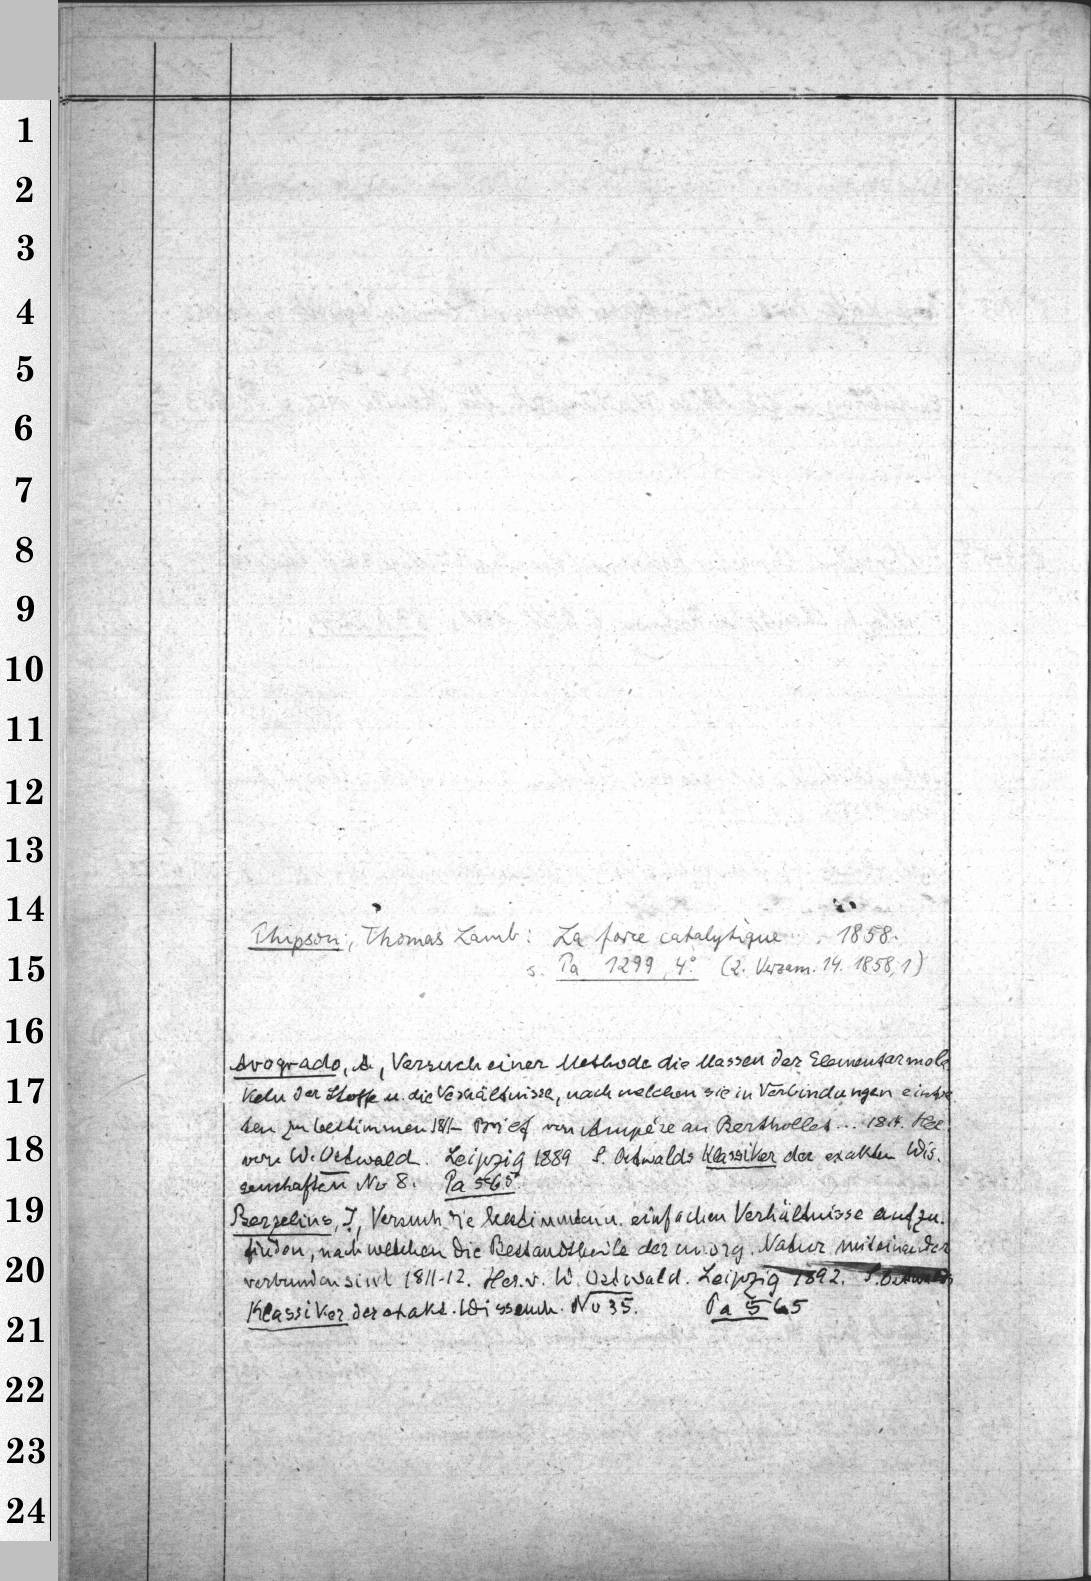 1
2
3
4
5
6
7
8
9
10
11
12
13
14
Phipson, Thomas Lamb: La force catalytique . 1858.
15
s. Pa 1299, 4° (2. Verzam. 14. 1858, 1)
16
Avogrado, A, Versuch einer Methode die Massen der Elementarmole
17
keln der Stoffe u. die Verhältnisse, nach welchen sie in Verbindungen eintre
ten zu bestimmen 1811 Brief von Ampére an Berthollet... 1814. Her.
18
von W. Ostwald. Leipzig 1889 S. Ostwalds Klassiker der exakten Wis.
senschaften No 8. Pa 565
19
Berzelius, J, Versuch, die bestimmten u. einfachen Verhältnisse aufzu.
finden, nach welchen die Bestandtheile der unorg. Natur miteinander
20
verbunden sind 1811-12. Her. v. W. Ostwald. Leipzig 1892. S. Ostwalds
Klassiker der exakt. Wissensch. No 35. Pa 565
21
22
23
24